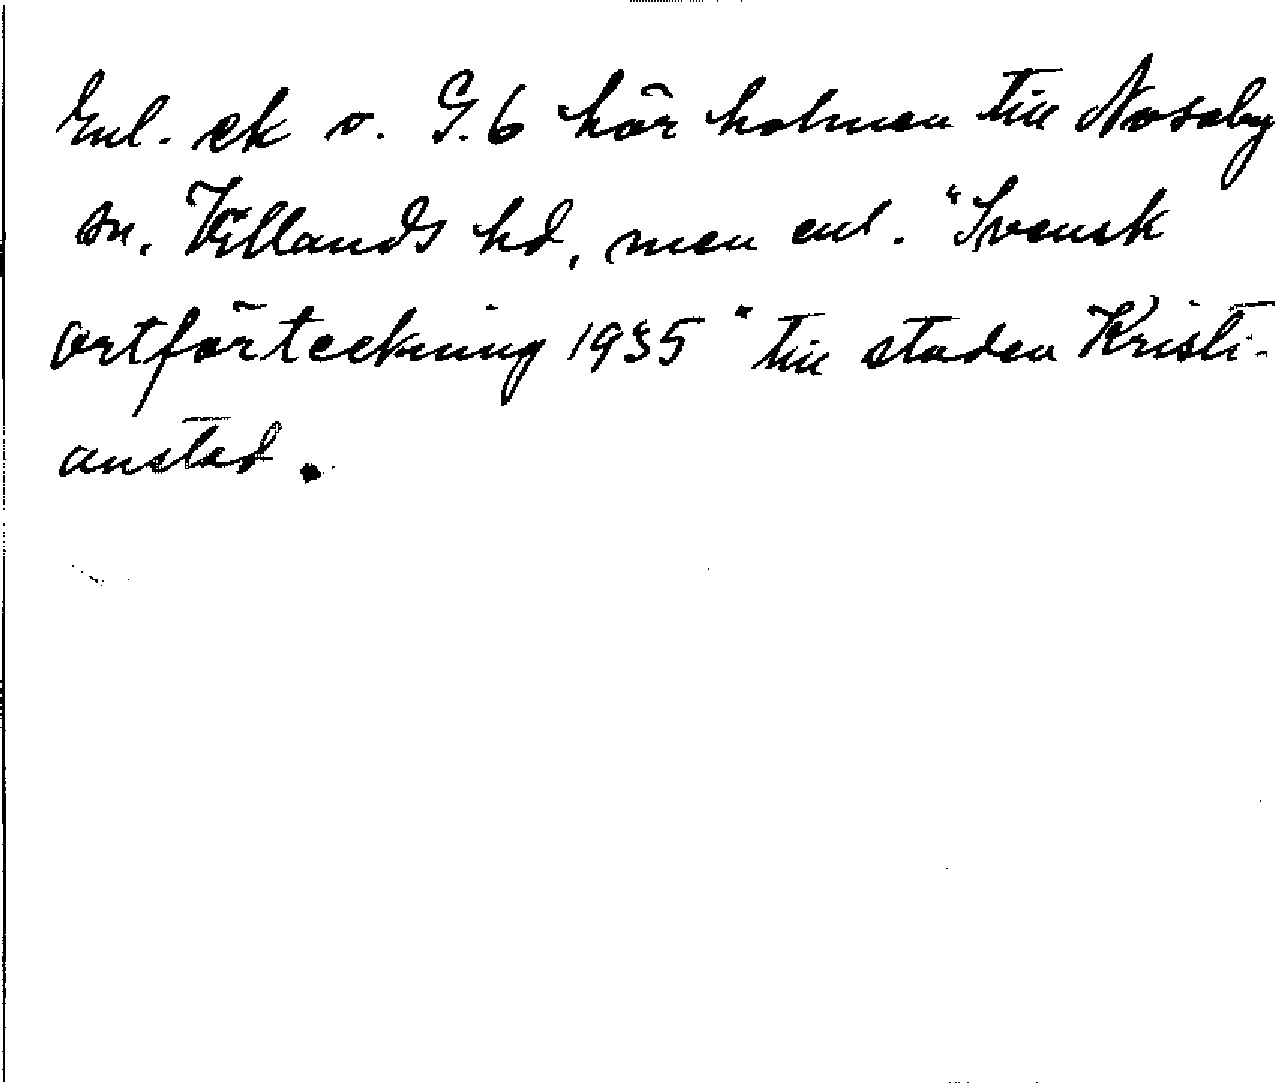 Enl. ek v. G.6 hör holmen till Nosaby
sn. Villands hd, men enl. "Svensk
ortförteckning 1935" till staden Kristi-
anstad.